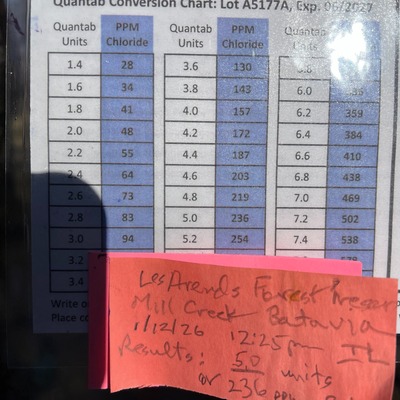 Quantab Conversion Chart: Lot A5177A, Exp. 06/2027
Quantab Units PPM Chloride Quantab Units PPM Chloride Quantab Units
1.4 28 3.6 130 5.8
1.6 34 3.8 143 6.0
1.8 41 4.0 157 6.2 359
2.0 48 4.2 172 6.4 384
2.2 55 4.4 187 6.6 410
2.4 64 4.6 203 6.8 438
2.6 73 4.8 219 7.0 469
2.8 83 5.0 236 7.2 502
3.0 94 5.2 254 7.4 538
3.2
3.4
Write
Place
Les Arends Forest Preser
Mill Creek Batavia
1/12/26 12:25pm IL
Results: 5.0 units
or 236 PPM